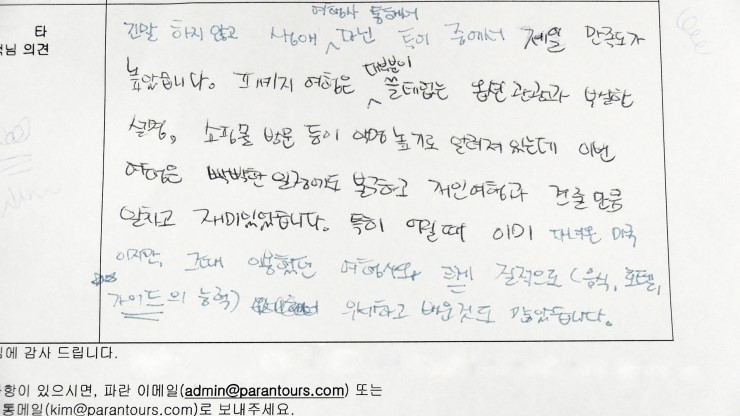 타
님 의견
여행사 통해서
긴말 하지 않고 생애 다닌 투어 중에서 제일 만족도가
높았습니다. 패키지 여행은 대부분이 쓸데없는 옵션 관광과 부실한
설명, 쇼핑몰 방문 등이 악명 높기로 알려져 있는데 이번
여행은 빡빡한 일정에도 불구하고 개인여행과 견줄 만큼
알차고 재미있었습니다. 특히 어릴때 이미 다녀온 미국
이지만, 그때 이용했던 여행사와 질적으로 (음식, 호텔,
가이드의 능력) 하고 배운것도 많았습니다.
에 감사 드립니다.
항이 있으시면, 파란 이메일(admin@parantours.com) 또는
통메일(kim@parantours.com)로 보내주세요.